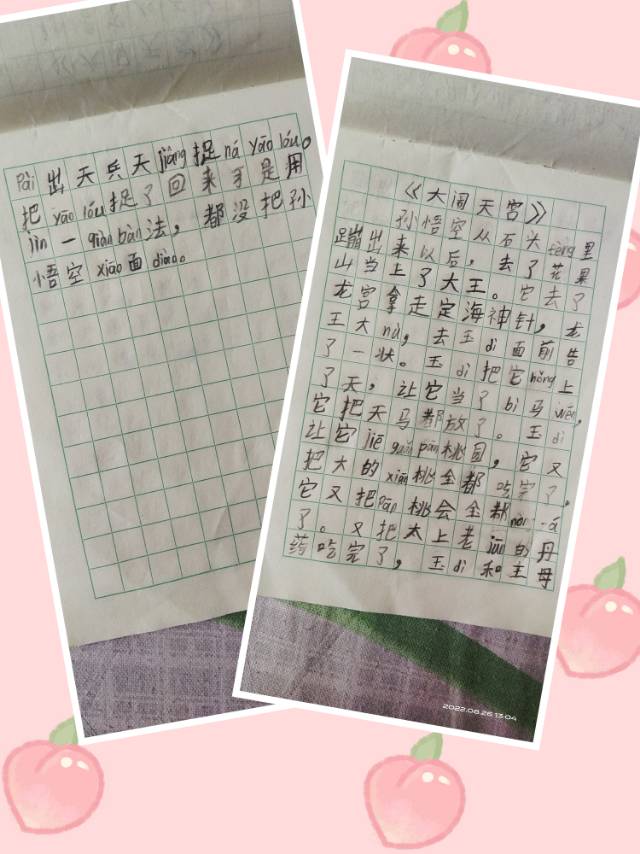 《大闹天宫》
孙悟空从石头fèng里
蹦出来以后，去了花果
山当上了大王。它去了
龙宫拿走定海神针，龙
王大nù，去玉dì面前告
了一状。玉dì把它hǒng上
了天，让它当了bì马wēn，
它把天马都放了。玉dì
让它jiē guǎn pán桃园，它又
把大的xiān桃全都吃完了，
它又把Pán桃会全都
了。又把太上老jūn的丹
药吃完了，玉dì和王母
Pài出天兵天jiàng捉ná yāo hóu。
把yāo hóu捉了回来于是用
jìn一qiān bàn法，都没把孙
悟空xiāo面diào。
2022.08.26 13:04